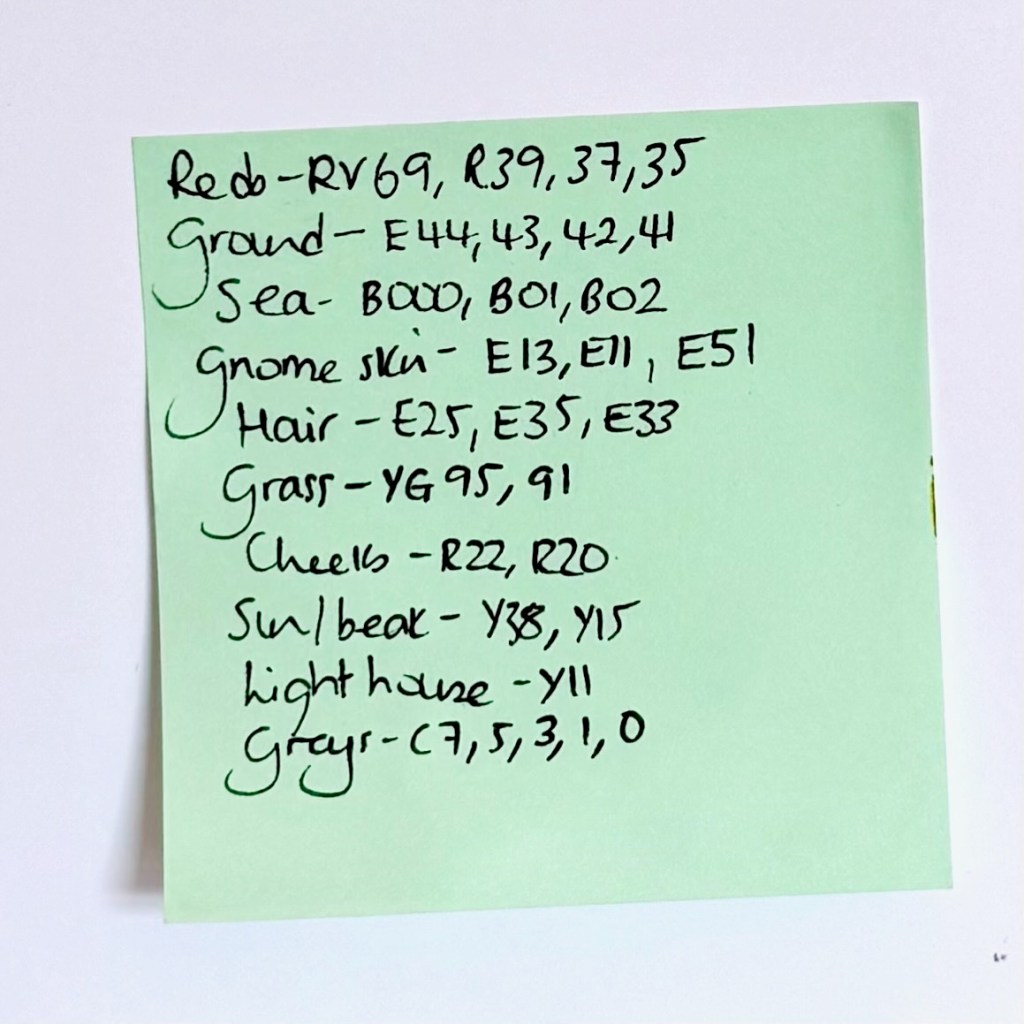 Reds - RV69, R39, 37, 35
Ground - E44, 43, 42, 41
Sea - B000, B01, B02
Gnome skin - E13, E11, E51
Hair - E25, E35, E33
Grass - YG95, 91
Cheeks - R22, R20
Sun/beak - Y38, Y15
Lighthouse - Y11
Greys - C7, 5, 3, 1, 0